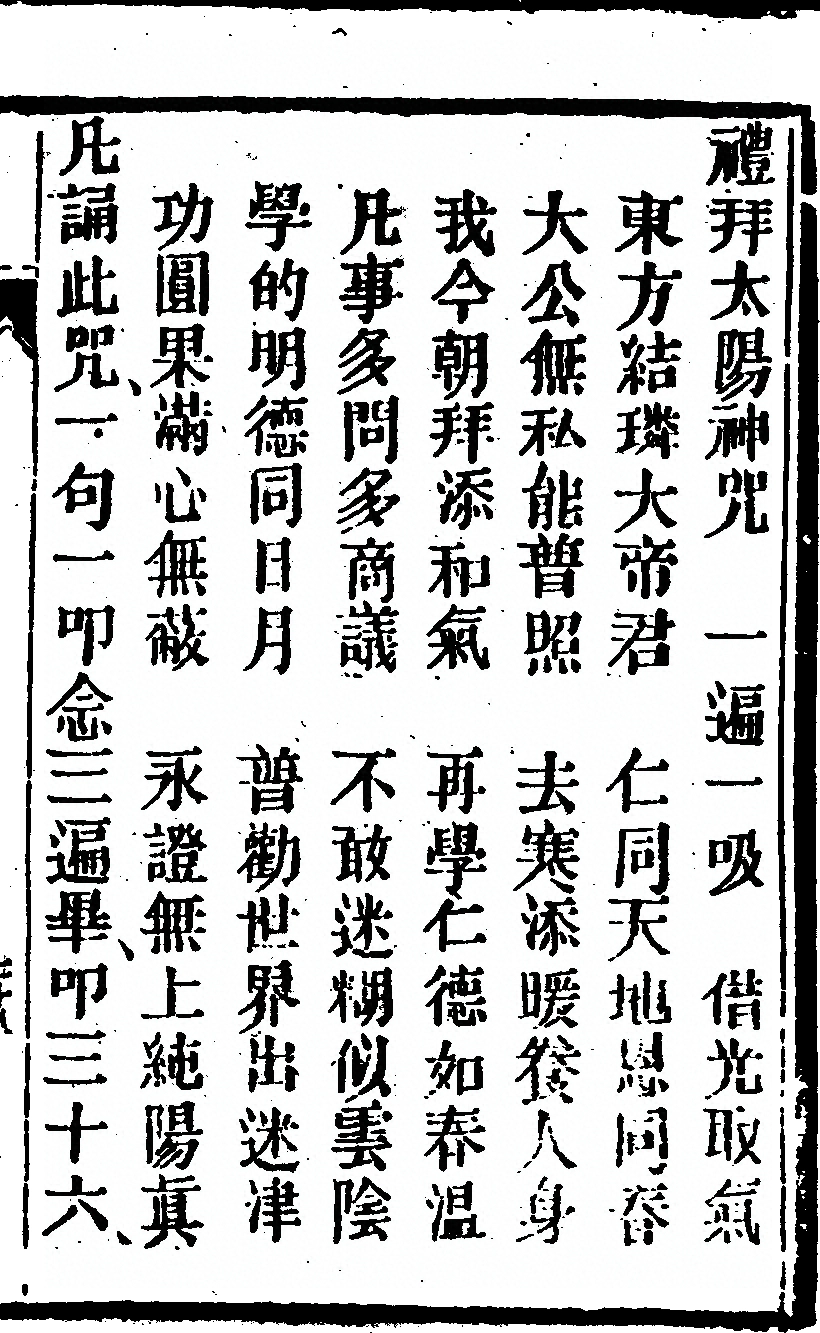 禮拜太陽神咒　一遍一吸　借光取氣
東方結璘大帝君　仁同天地恩同春
大公無私能普照　去寒添暖養人身
我今朝拜添和氣　再學仁德如春温
凡事多問多商議　不敢迷糊似雲陰
學的明德同日月　普勸世界出迷津
功圓果滿心無蔽　永證無上純陽眞
凡誦此咒、一句一叩念三遍畢、叩三十六、